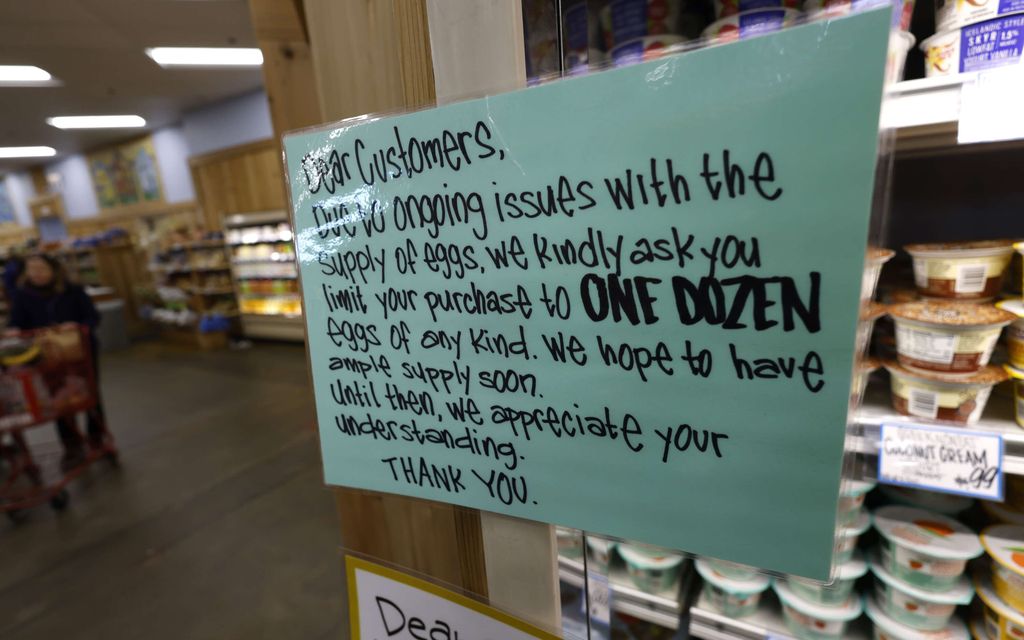 Dear Customers,
Due to ongoing issues with the
supply of eggs, we kindly ask you
limit your purchase to ONE DOZEN
eggs of any kind. We hope to have
ample supply soon.
Until then, we appreciate your
understanding.
THANK YOU.
Dea
ICELANDIC STYLE
SKYR 1.5%
LOWFAT
COCONUT CREAM
99